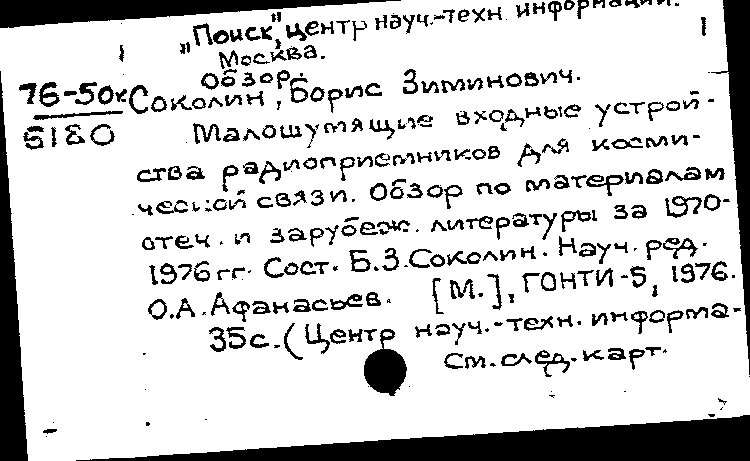 „Поиск", центр науч.-техн информации.
Москва.
Обзор.
76-50к Соколин, Борис Зиминович.
6180 Малошумящие входные устрой-
ства радиоприемников для косми-
ческой связи. Обзор по материалам
отеч. и зарубеж. литературы за 1970-
1976 гг. Сост. Б.З.Соколин. Науч. ред.
О.А.Афанасьев. [М.], ГОНТИ-5, 1976.
35с. (Центр науч.-техн. информа-
См. след. карт.